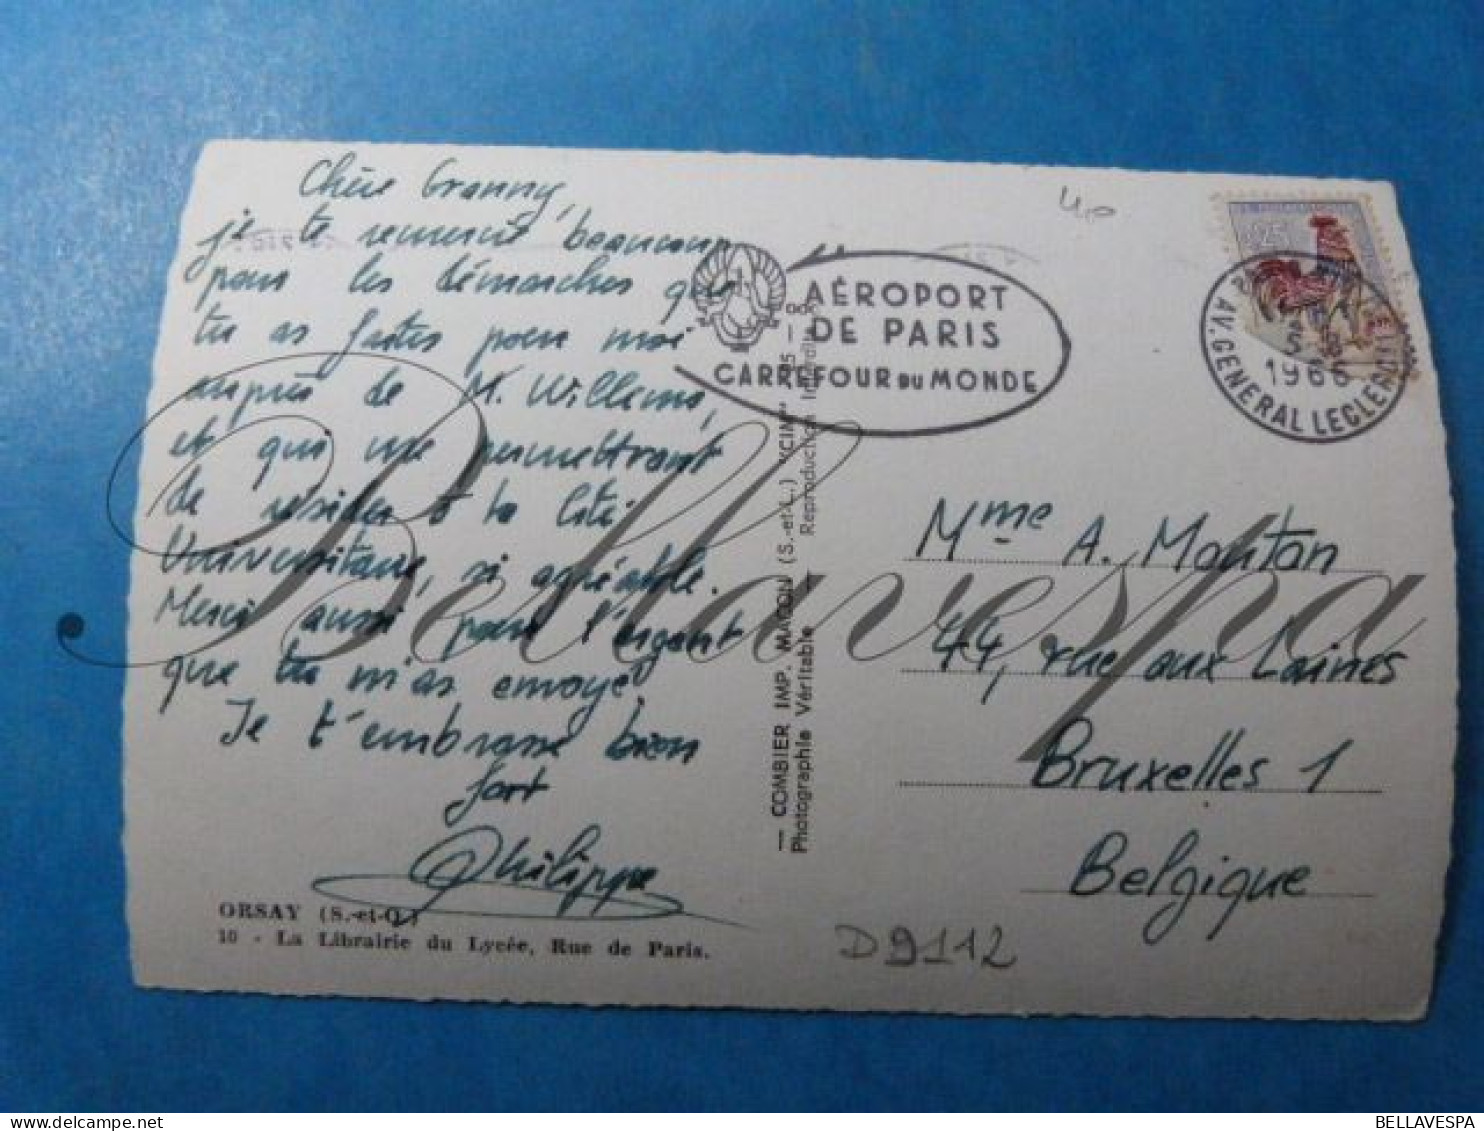 Chère Granny,
je te remercie beaucoup
pour les démarches que
tu as faites pour moi
auprès de M. Willems,
et qui me permettront
de résider à la Cité
Universitaire, si agréable.
Merci aussi pour l'argent
que tu m'as envoyé.
Je t'embrasse bien
fort
Philippe
ORSAY (S.-et-O.)
10 - La Librairie du Lycée, Rue de Paris.
— COMBIER IMP. MACON (S.-et-L.) "CIM"
Photographie Véritable - Reproduction Interdite
AÉROPORT
DE PARIS
CARREFOUR DU MONDE
0,25
AV. GENERAL LECLERC
1966
Mme A. Mouton
44, rue aux Laines
Bruxelles 1
Belgique
D9112
Bellavespa
BELLAVESPA